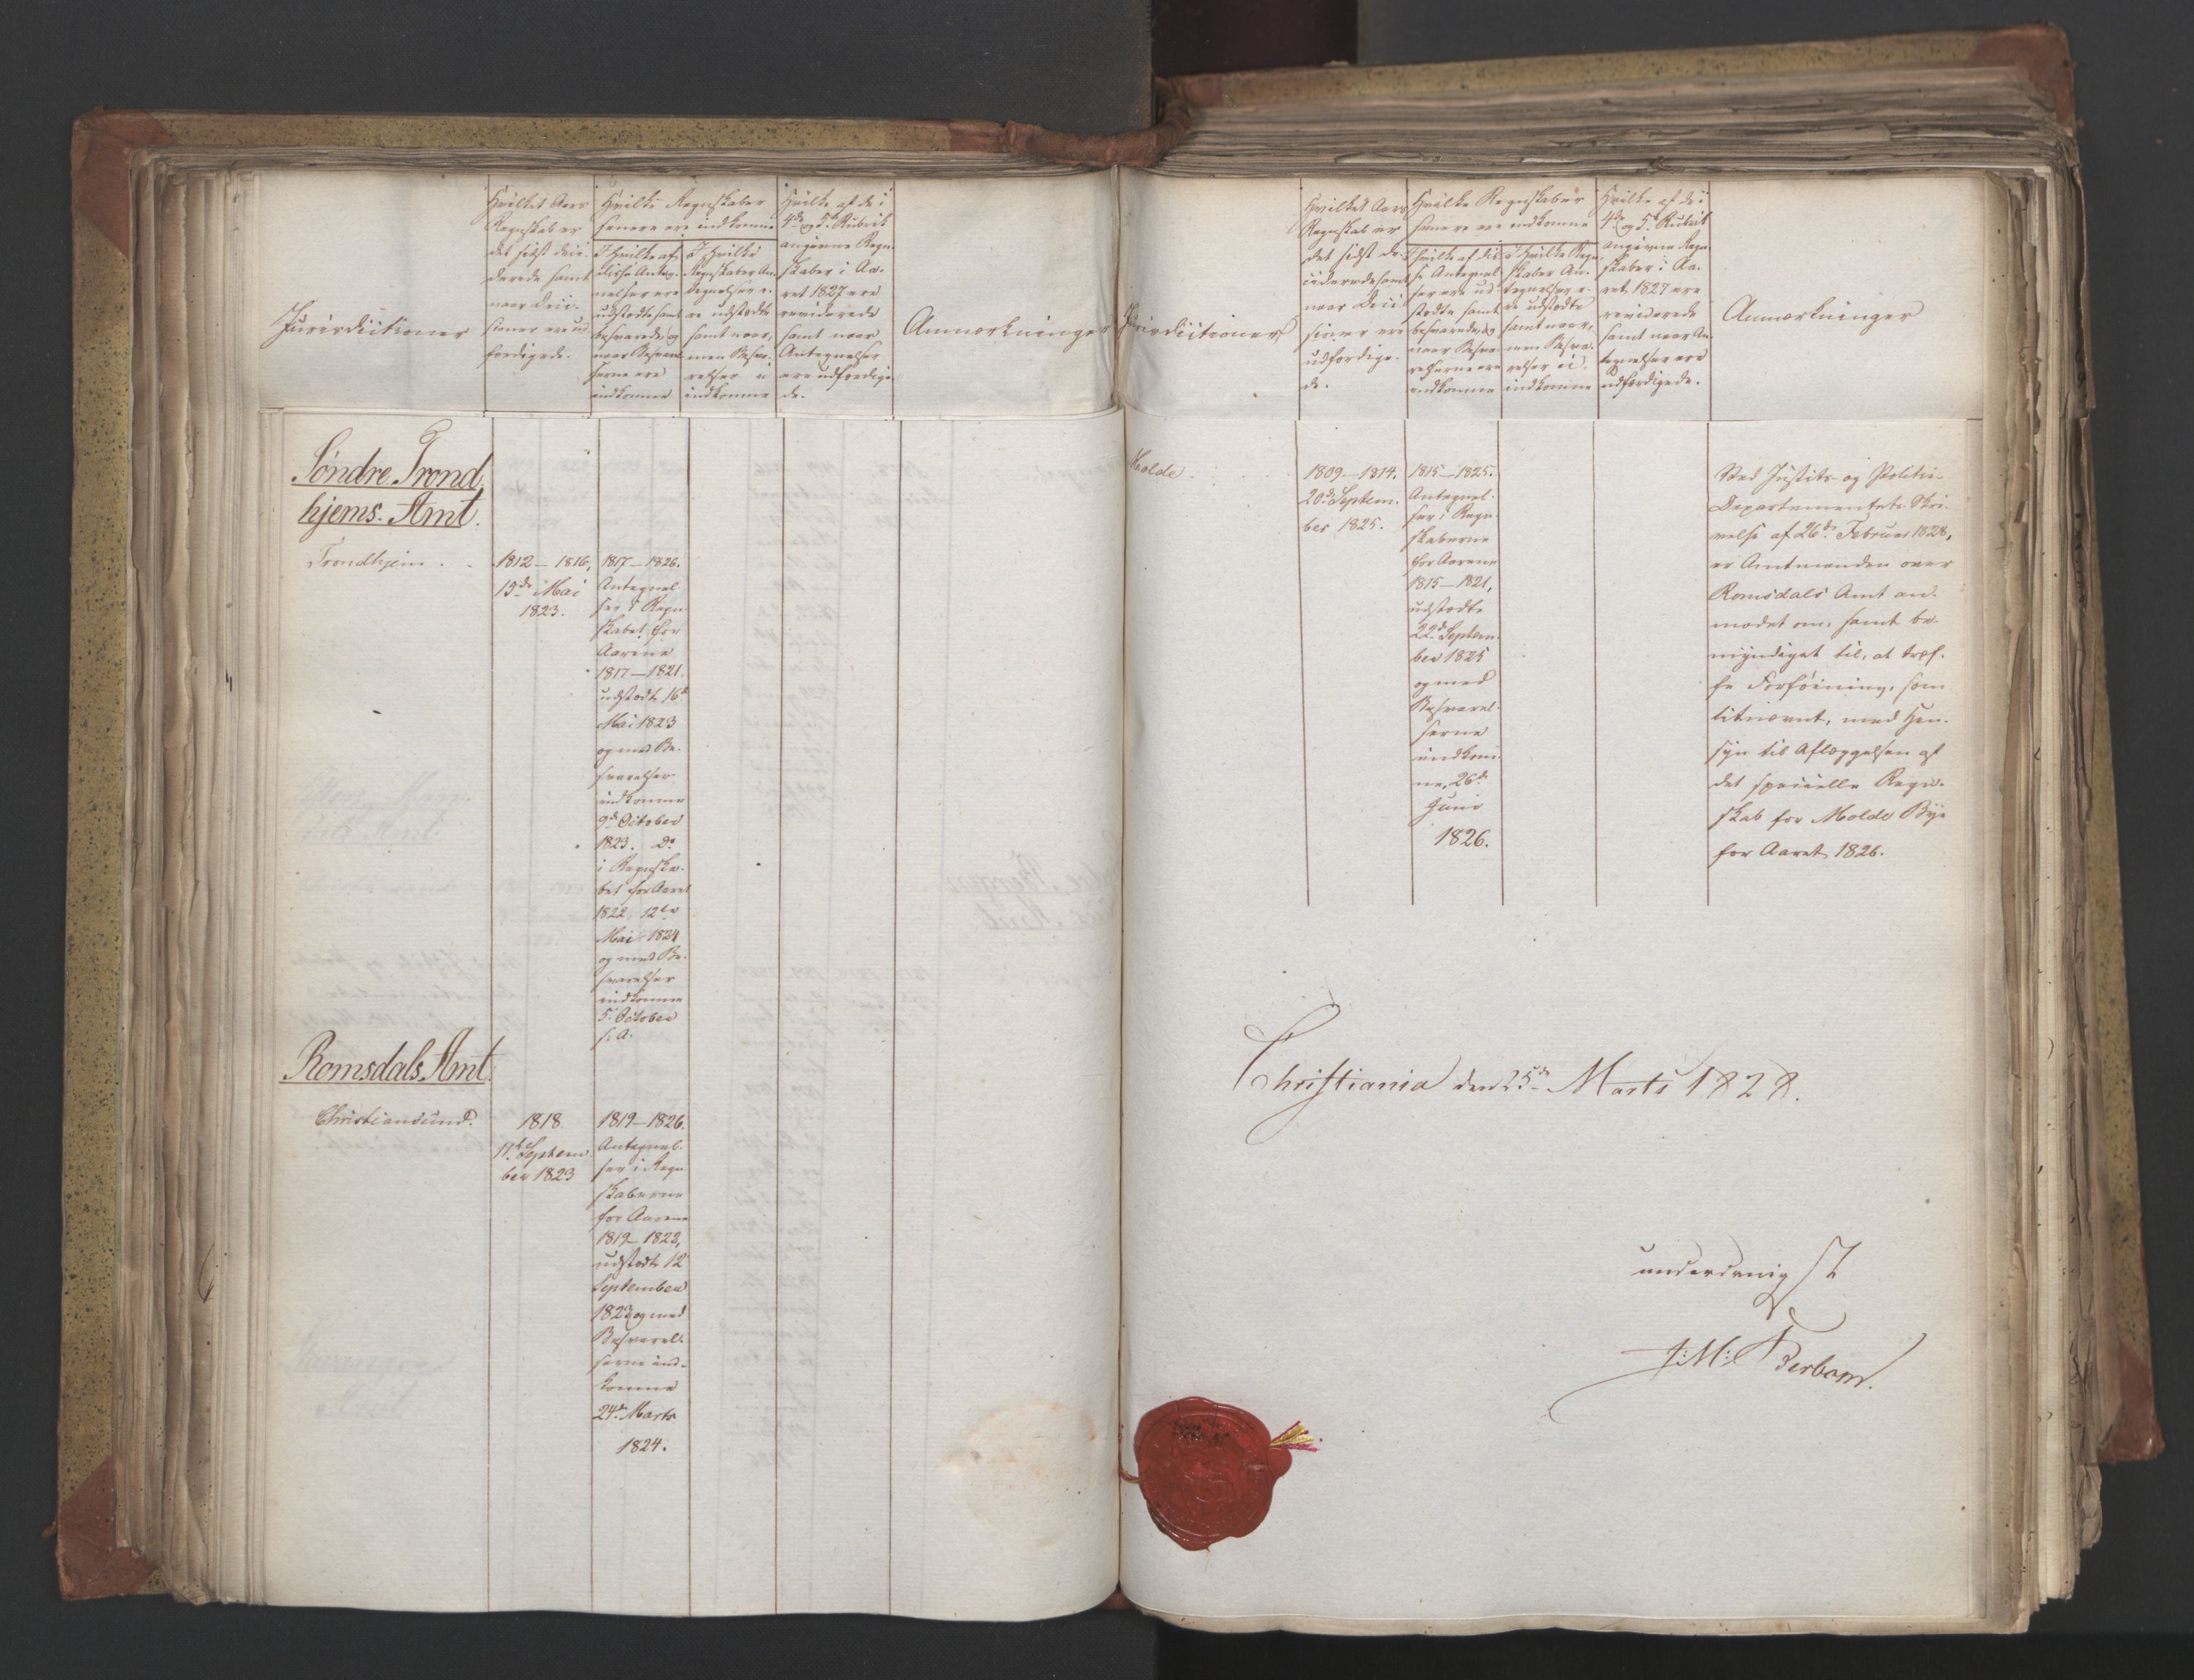 Jurisdictioner
Hvilket Aars
Regnskab er
det sidst deci-
derede samt
naar Deci-
sioner ere ud
færdigede.
Hvilke Regnskaber
senere ere indkomne
I Hvilke af
disse Anteg-
nelser ere
udstædte samt
besvarede, og
naar Besvarel
serne ere
indkomne
I Hvilke
Regnskaber An
tegnelser e-
re udstædte
samt naar,
men Besva-
relser ei
indkomne
Hvilke af de i
4de og 5te Rubrik
angivne Regn-
skaber i Aa-
ret 1827 ere
reviderede
samt naar
Antegnelser
ere udfærdige
de.
Anmærkninger
Søndre Trond
hjems Amt.
Trondhjem . .
1812 — 1816,
15de Mai
1823.
1817 — 1826.
Antegnel-
ser i Regn
skabet for
Aarene
1817 — 1821.
udstædt 16de
Mai 1823
og med Be-
svarelser
indkomne
9de October
1823. Do
i Regnska-
bet for Aaret
1822, 12te
Mai 1824
og med Be-
svarelser
indkomne
5. October
s. A.
Romsdals Amt.
Christiansund.
1818
11te Septem
ber 1823
1819 — 1826.
Antegnel-
ser i Regn
skaberne
for Aarene
1819 — 1822,
udstædt 12
September
1823 og med
Besvarel-
serne ind-
komne
24de Marts
1824.
Jurisdictioner
Hvilket Aars
Regnskab er
det sidst de-
ciderede samt
naar Deci
sioner ere
udfærdige-
de.
Hvilke Regnskaber
senere ere indkomne
I Hvilke af dis
se Antegnel-
ser ere ud-
stædte samt
besvarede, og
naar Besva-
relserne ere
indkomne
I Hvilke Regn-
skaber An-
tegnelser e-
re udstædte
samt naar,
men Besva-
relser ei
indkomne
Hvilke af de i
4de og 5te Rubrik
angivne Regn-
skaber i Aa-
ret 1827 ere
reviderede
samt naar An-
tegnelser ere
udfærdigede.
Anmærkninger
Molde . . .
1809 — 1814.
20de Septem-
ber 1825.
1815 — 1825.
Antegnel-
ser i Regn-
skaberne
for Aarene
1815 — 1821,
udstædte
22de Septem-
ber 1825
og med
Besvarel-
serne
indkom-
ne, 26de
Juni
1826.
Ved Justits- og Politie-
Departementets Skri-
velse af 26de Februar 1828,
er Amtmanden over
Romsdals Amt an-
modet om, samt be-
myndiget til, at træf-
fe Forføining, som
tilnævnt, med Hen-
syn til Aflæggelsen af
det specielle Regn-
skab for Molde Bye
for Aaret 1826.
Christiania den 25de Marts 1828.
underdanigst